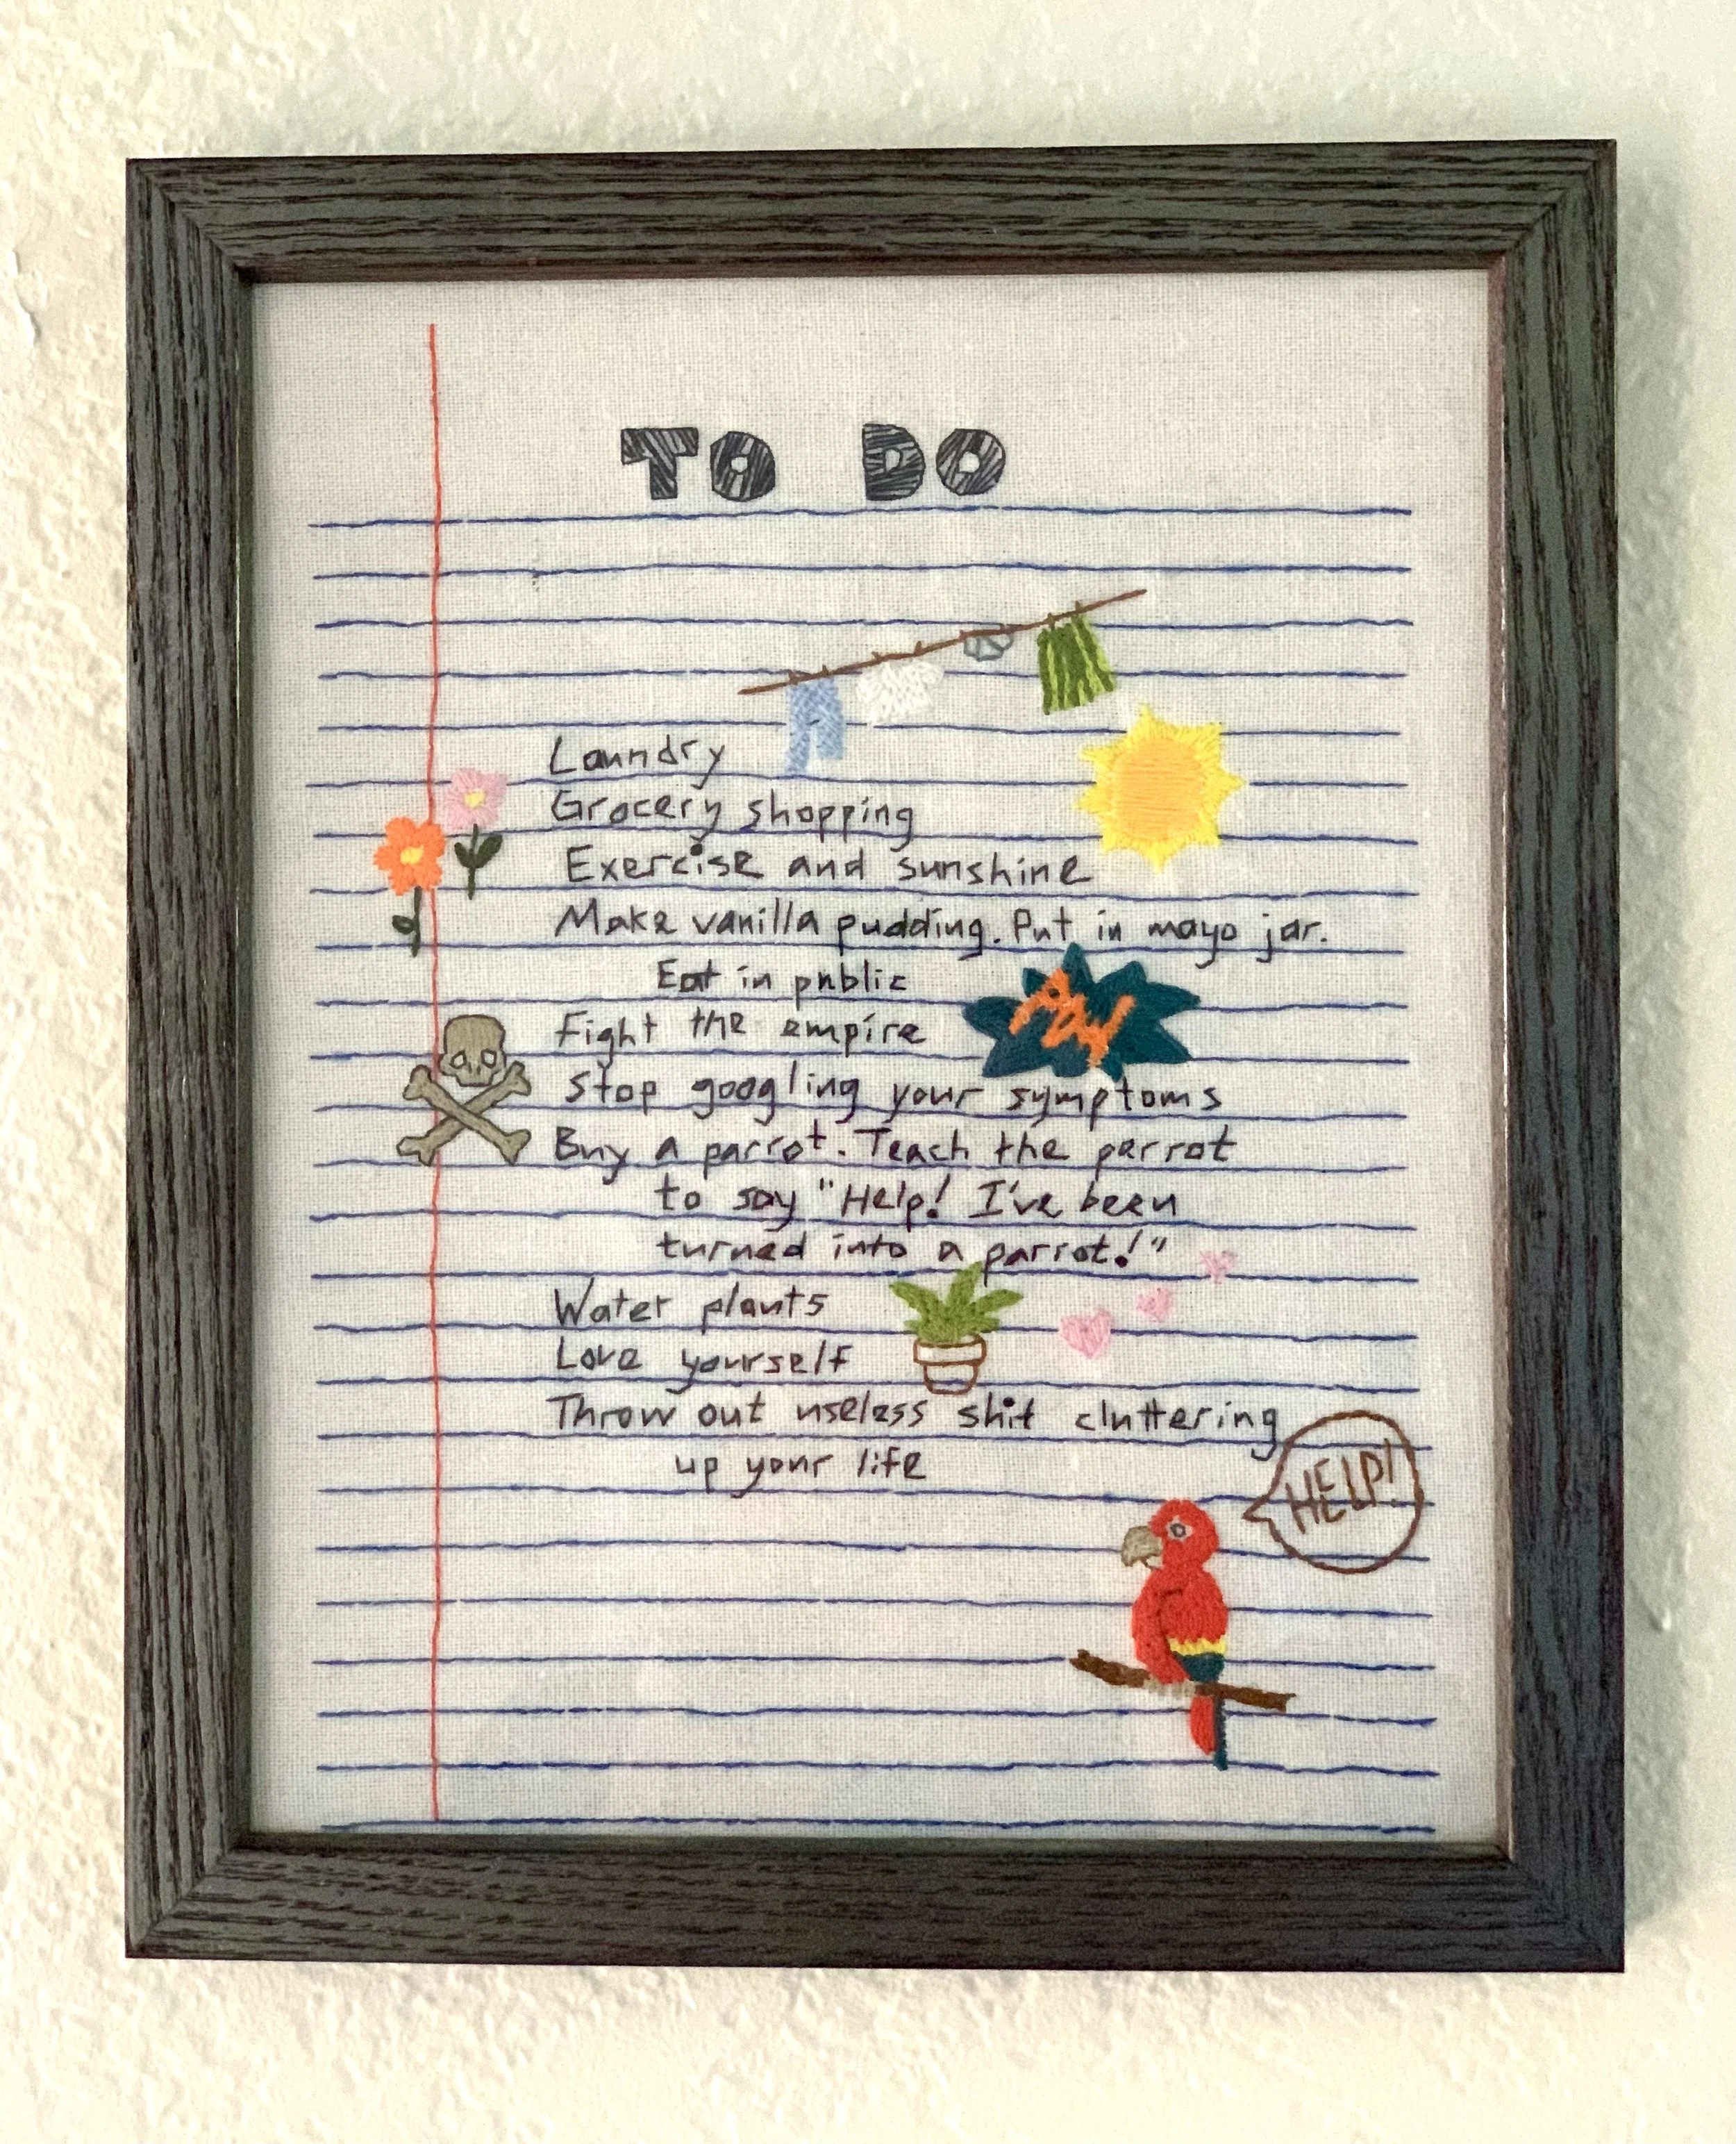 TO DO
Laundry
Grocery shopping
Exercise and sunshine
Make vanilla pudding. Put in mayo jar.
Eat in public
POW
Fight the empire
Stop googling your symptoms
Buy a parrot. Teach the parrot
to say "Help! I've been
turned into a parrot!"
Water plants
Love yourself
Throw out useless shit cluttering
up your life
HELP!